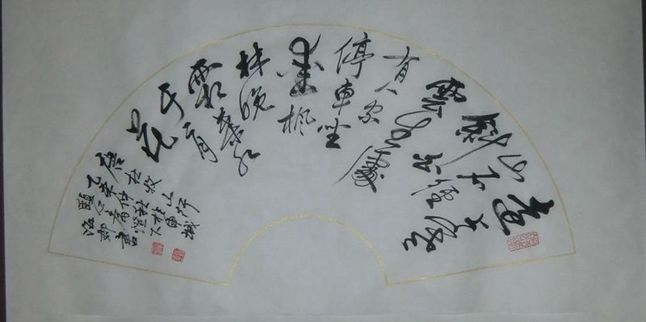 遠
上寒
山石徑
斜白
雲生處
有人家
停車坐
愛楓
林晚
霜葉紅
於二月
花
唐杜牧山行
乙未仲秋